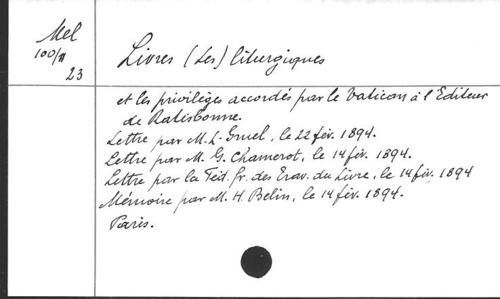 Mel
100/11
23
Livres (Les) liturgiques
et les privilèges accordés par le Vatican à l'Editeur
de Ratisbonne.
Lettre par M. L. Gruel, le 22 fév. 1894.
Lettre par M. G. Chamerot, le 14 fév. 1894.
Lettre par la Féd. fr. des Trav. du Livre, le 14 fév. 1894
Mémoire par M. H. Belin, le 14 fév. 1894.
Paris.